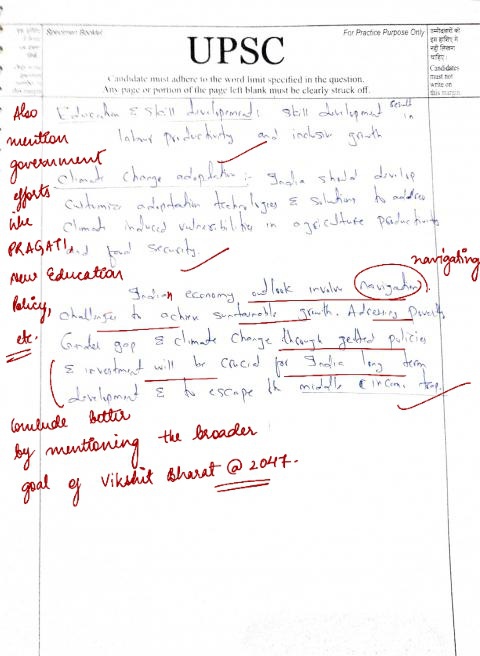 Specimen Booklet
For Practice Purpose Only
उम्मीदवारों को
इस हाशिए में
नहीं लिखना
चाहिए।
Candidates
must not
write on
this margin
UPSC
Candidate must adhere to the word limit specified in the question.
Any page or portion of the page left blank must be clearly struck off.
Also mention government efforts like PRAGATI, New Education Policy, etc.
Education & skill development: skill development result in
labour productivity and inclusive growth
Climate Change adaptation:- India should develop
Customize adaptation technologies & solutions to address
Climate induced vulnerabilities in agriculture productivity
and food security.
navigating
Indian economy outlook involve navigation
challenges to achieve sustainable growth. Adressing Poverty,
Gender gap & climate Change through policies
& investment will be crucial for India long term
development & to escape th middle trap.
Conclude better
by mentioning the broader
goal of Vikshit Bharat @ 2047.